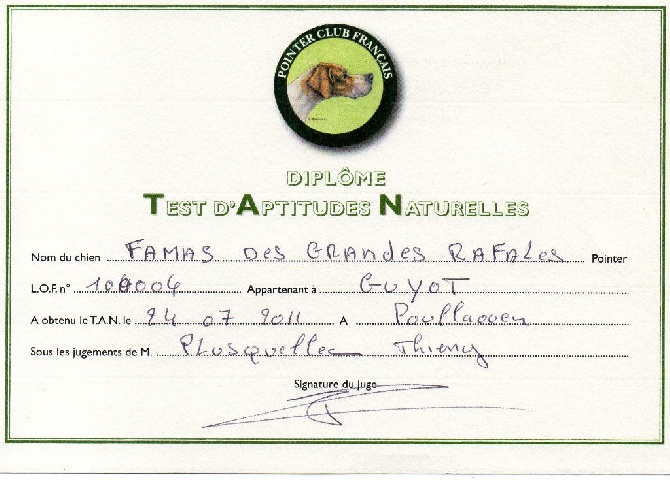 POINTER CLUB FRANÇAIS
DIPLÔME
TEST D'APTITUDES NATURELLES
Nom du chien FAMAS DES GRANDES RAFALES Pointer
L.O.F. n° Appartenant à GUYOT
A obtenu le T.A.N. le 24 07 2011 A Poullaouen
Sous les jugements de M. PLUSQUELLEC Thierry
Signature du juge